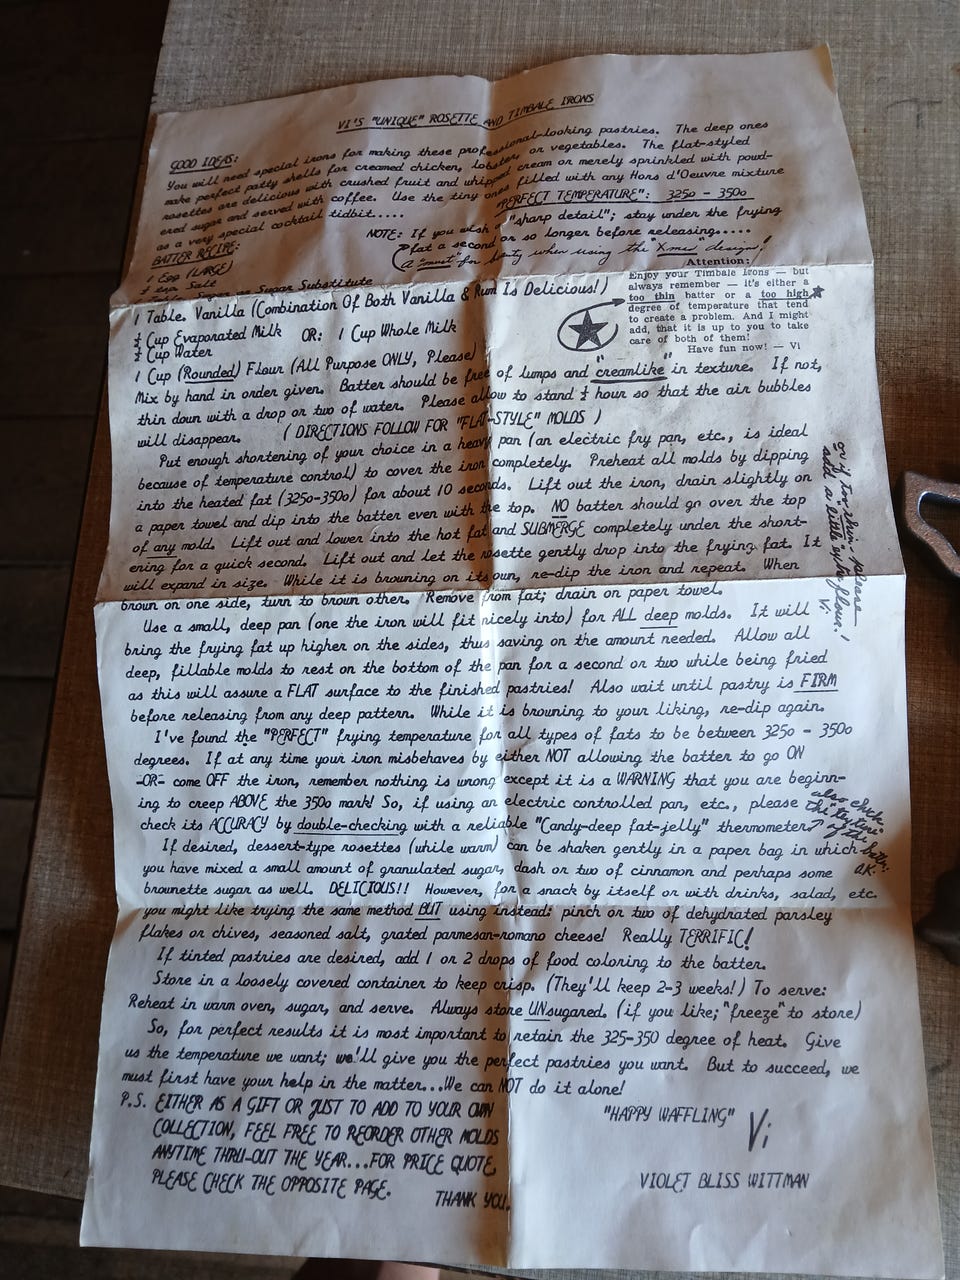 VI'S "UNIQUE" ROSETTE AND TIMBALE IRONS
GOOD IDEAS:
You will need special irons for making these professional-looking pastries. The deep ones
make perfect patty shells for creamed chicken, lobster, or vegetables. The flat-styled
rosettes are delicious with crushed fruit and whipped cream or merely sprinkled with powd-
ered sugar and served with coffee. Use the tiny ones filled with any Hors d'Oeuvre mixture
as a very special cocktail tidbit.....
"PERFECT TEMPERATURE": 325o - 350o
NOTE: If you wish a "sharp detail"; stay under the frying
fat a second or so longer before releasing.....
(A "must" for beauty when using the "Xmas" design!
BATTER RECIPE:
1 Egg (LARGE)
Salt
Sugar or Sugar Substitute
1 Table. Vanilla (Combination Of Both Vanilla & Rum Is Delicious!)
Cup Evaporated Milk OR: 1 Cup Whole Milk
Cup Water
1 Cup (Rounded) Flour (All Purpose ONLY, Please)
Attention:
Enjoy your Timbale Irons — but
always remember — it's either a
too thin batter or a too high
degree of temperature that tend
to create a problem. And I might
add, that it is up to you to take
care of both of them!
Have fun now! — Vi
Mix by hand in order given. Batter should be free of lumps and "creamlike" in texture. If not,
thin down with a drop or two of water. Please allow to stand ½ hour so that the air bubbles
will disappear. ( DIRECTIONS FOLLOW FOR "FLAT-STYLE" MOLDS )
Put enough shortening of your choice in a heavy pan (an electric fry pan, etc., is ideal
because of temperature control) to cover the iron completely. Preheat all molds by dipping
into the heated fat (325o-350o) for about 10 seconds. Lift out the iron, drain slightly on
a paper towel and dip into the batter even with the top. NO batter should go over the top
of any mold. Lift out and lower into the hot fat and SUBMERGE completely under the short-
ening for a quick second. Lift out and let the rosette gently drop into the frying fat. It
will expand in size. While it is browning on its own, re-dip the iron and repeat. When
brown on one side, turn to brown other. Remove from fat; drain on paper towel.
or if too thin - please
add a little extra flour!
Vi
Use a small, deep pan (one the iron will fit nicely into) for ALL deep molds. It will
bring the frying fat up higher on the sides, thus saving on the amount needed. Allow all
deep, fillable molds to rest on the bottom of the pan for a second or two while being fried
as this will assure a FLAT surface to the finished pastries! Also wait until pastry is FIRM
before releasing from any deep pattern. While it is browning to your liking, re-dip again.
I've found the "PERFECT" frying temperature for all types of fats to be between 325o - 350o
degrees. If at any time your iron misbehaves by either NOT allowing the batter to go ON
-OR- come OFF the iron, remember nothing is wrong except it is a WARNING that you are beginn-
ing to creep ABOVE the 350o mark! So, if using an electric controlled pan, etc., please
check its ACCURACY by double-checking with a reliable "Candy-deep fat-jelly" thermometer
also check
the "texture"
of the
batter
O.K.
If desired, dessert-type rosettes (while warm) can be shaken gently in a paper bag in which
you have mixed a small amount of granulated sugar, dash or two of cinnamon and perhaps some
brownette sugar as well. DELICIOUS!! However, for a snack by itself or with drinks, salad, etc.
you might like trying the same method BUT using instead: pinch or two of dehydrated parsley
flakes or chives, seasoned salt, grated parmesan-romano cheese! Really TERRIFIC!
If tinted pastries are desired, add 1 or 2 drops of food coloring to the batter.
Store in a loosely covered container to keep crisp. (They'll keep 2-3 weeks!) To serve:
Reheat in warm oven, sugar, and serve. Always store UNsugared. (if you like; "freeze" to store)
So, for perfect results it is most important to retain the 325-350 degree of heat. Give
us the temperature we want; we'll give you the perfect pastries you want. But to succeed, we
must first have your help in the matter...We can NOT do it alone!
P.S. EITHER AS A GIFT OR JUST TO ADD TO YOUR OWN
COLLECTION, FEEL FREE TO REORDER OTHER MOLDS
ANYTIME THRU-OUT THE YEAR...FOR PRICE QUOTE,
PLEASE CHECK THE OPPOSITE PAGE.
THANK YOU.
"HAPPY WAFFLING"
Vi
VIOLET BLISS WITTMAN